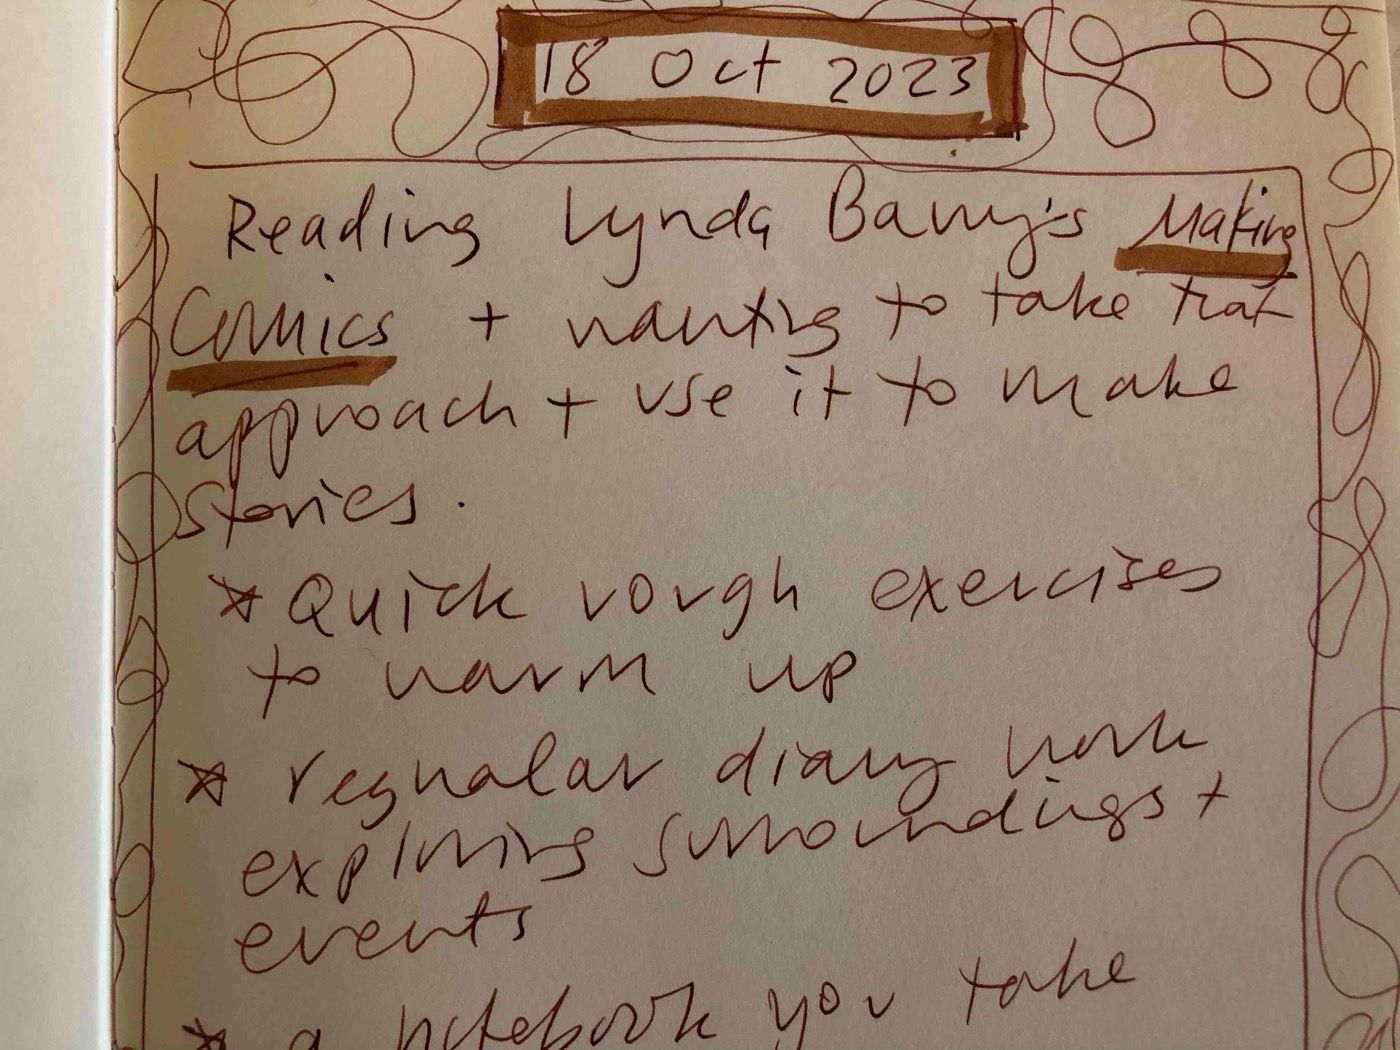 18 Oct 2023
Reading Lynda Barry's Making
Comics + wanting to take that
approach + use it to make
stories.
* Quick rough exercises
to warm up
* regualar diary work
exploring surroundings +
events
* a notebook you take